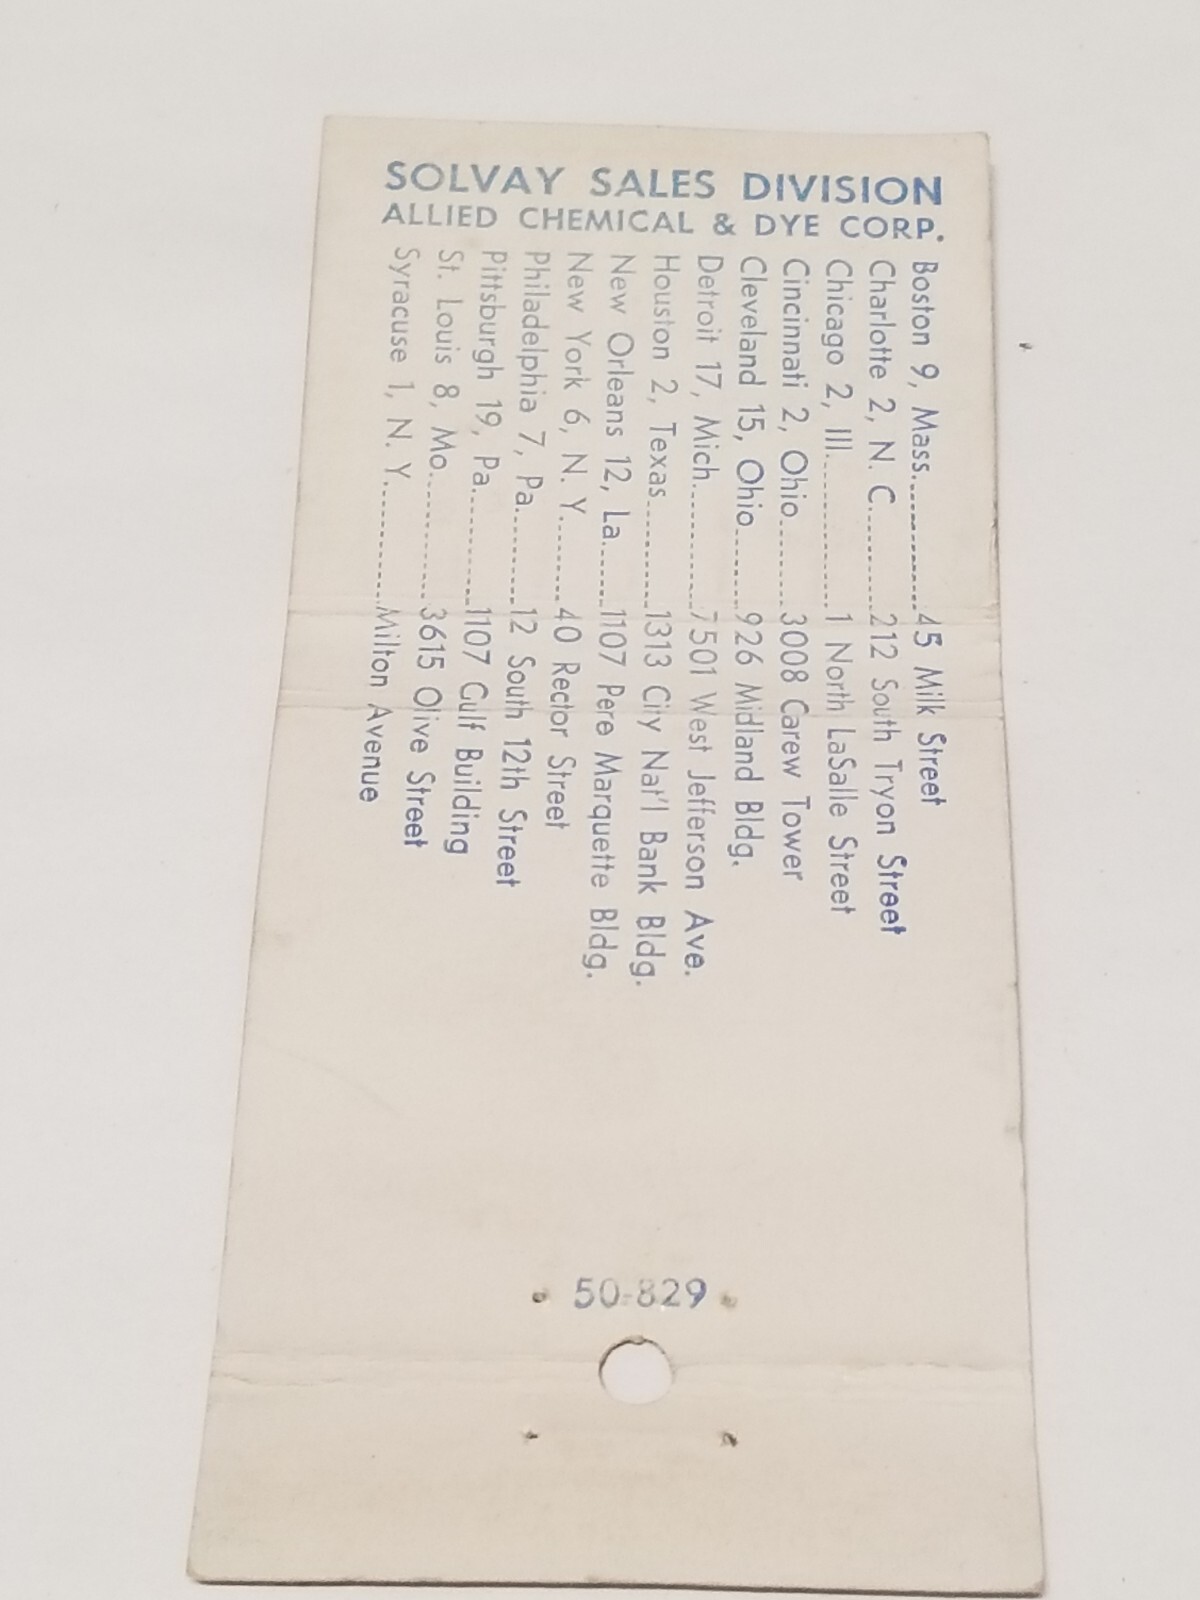 SOLVAY SALES DIVISION
ALLIED CHEMICAL & DYE CORP.
Boston 9, Mass............45 Milk Street
Charlotte 2, N. C..........212 South Tryon Street
Chicago 2, Ill................1 North LaSalle Street
Cincinnati 2, Ohio........3008 Carew Tower
Cleveland 15, Ohio........926 Midland Bldg.
Detroit 17, Mich............7501 West Jefferson Ave.
Houston 2, Texas..........1313 City Nat'l Bank Bldg.
New Orleans 12, La.......1107 Pere Marquette Bldg.
New York 6, N. Y.........40 Rector Street
Philadelphia 7, Pa.........12 South 12th Street
Pittsburgh 19, Pa...........1107 Gulf Building
St. Louis 8, Mo.............3615 Olive Street
Syracuse 1, N. Y............Milton Avenue
50-829